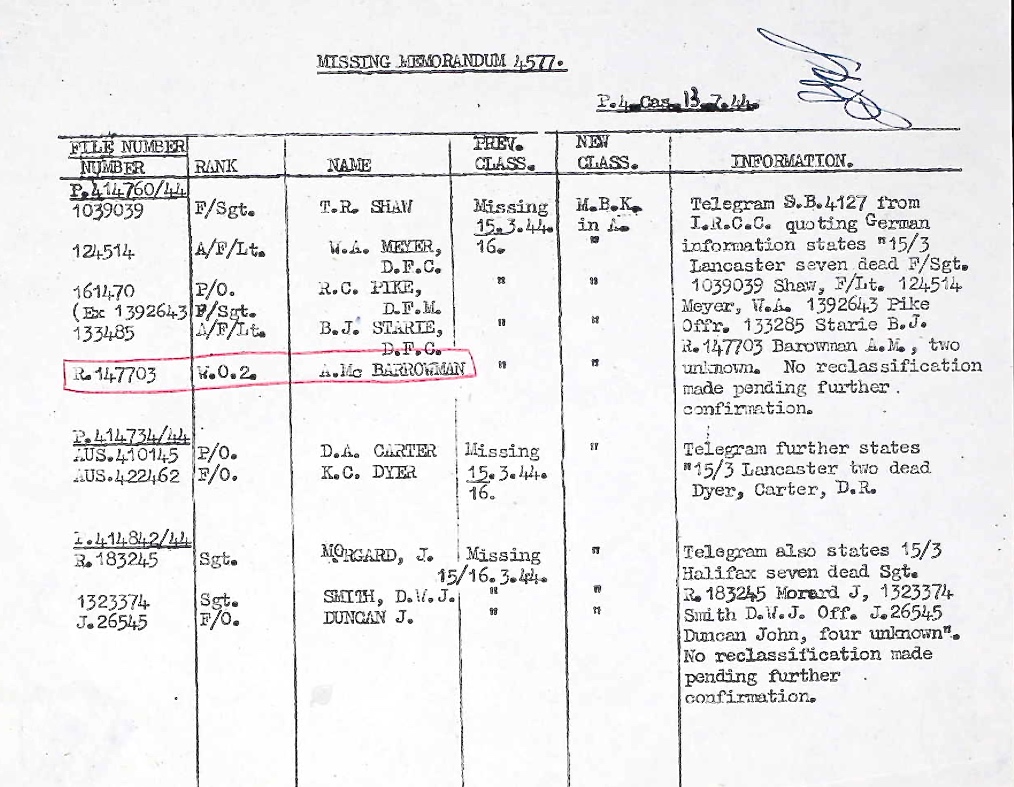 MISSING MEMORANDUM 4577.
P.4 Cas 13.7.44
FILE NUMBER
NUMBER RANK NAME PREV. CLASS. NEW CLASS. INFORMATION.
P.414760/44
1039039 F/Sgt. T.R. SHAW Missing M.B.K. Telegram S.B.4127 from
15.3.44. in A. I.R.C.C. quoting German
124514 A/F/Lt. W.A. MEYER, 16. " information states "15/3
D.F.C. Lancaster seven dead F/Sgt.
161470 P/O. R.C. PIKE, " " 1039039 Shaw, F/Lt. 124514
(Ex 1392643 F/Sgt. D.F.M. Meyer, W.A. 1392643 Pike
133485 A/F/Lt. B.J. STARIE, " " Offr. 133285 Starie B.J.
D.F.C. R.147703 Barowman A.M., two
R.147703 W.O.2. A.Mc BARROWMAN " " unknown. No reclassification
made pending further
confirmation.
P.414734/44
AUS.410145 P/O. D.A. CARTER Missing " Telegram further states
AUS.422462 F/O. K.C. DYER 15.3.44. "15/3 Lancaster two dead
16. Dyer, Carter, D.R.
P.414842/44
R.183245 Sgt. MORGARD, J. Missing " Telegram also states 15/3
15/16.3.44. Halifax seven dead Sgt.
1323374 Sgt. SMITH, D.W.J. " " R.183245 Morard J, 1323374
J.26545 F/O. DUNCAN J. " " Smith D.W.J. Off. J.26545
Duncan John, four unknown".
No reclassification made
pending further
confirmation.